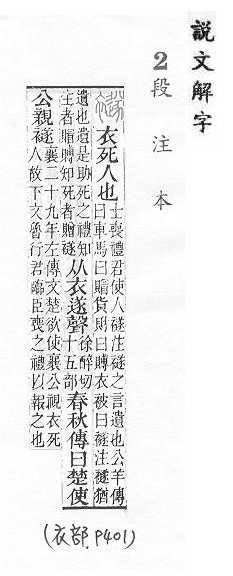 説文解字
2段注本
襚
衣死人也
士喪禮君使人襚注襚之言遺也公羊傳
曰車馬曰賵貨財曰賻衣被曰襚注襚猶
遺也遺是助死之禮知
生者賵賻知死者贈襚
从衣遂聲
徐醉切
十五部
春秋傳曰楚使
公親襚
襄二十九年左傳文楚欲使襄公視衣死
人故下文魯行君臨臣喪之禮以報之也
(衣部.P401)